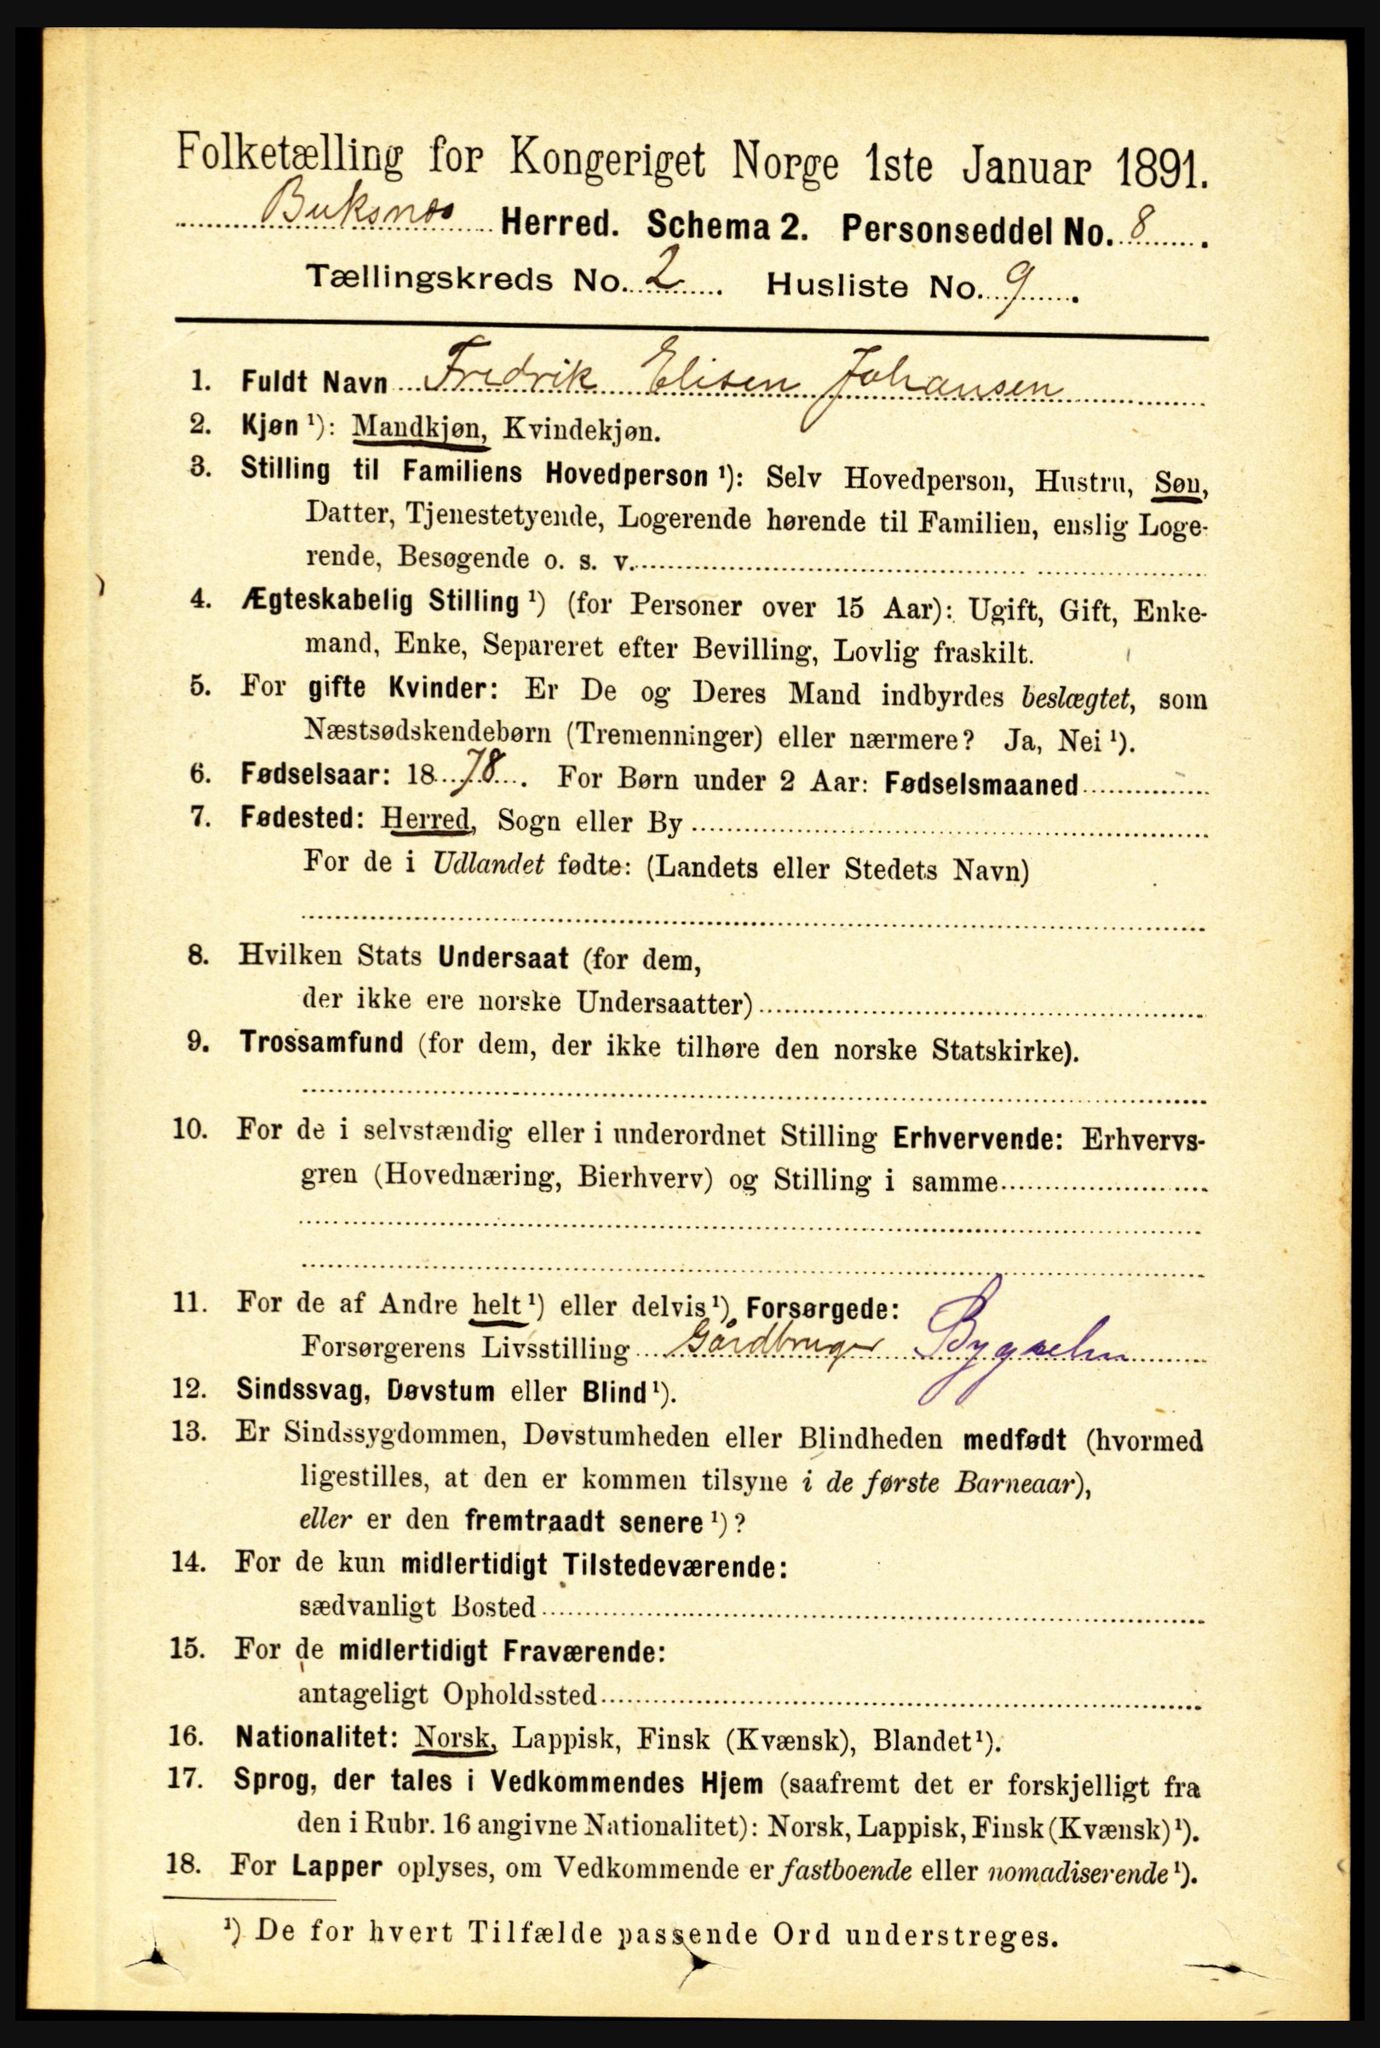 Folketælling for Kongeriget Norge 1ste Januar 1891.
Buksnes Herred. Schema 2. Personseddel No. 8.
Tællingskreds No. 2. Husliste No. 9.
1. Fuldt Navn Fredrik Elisen Johansen
2. Kjøn ¹): Mandkjøn, Kvindekjøn.
3. Stilling til Familiens Hovedperson ¹): Selv Hovedperson, Hustru, Søn,
Datter, Tjenestetyende, Logerende hørende til Familien, enslig Loge-
rende, Besøgende o. s. v.
4. Ægteskabelig Stilling ¹) (for Personer over 15 Aar): Ugift, Gift, Enke-
mand, Enke, Separeret efter Bevilling, Lovlig fraskilt.
5. For gifte Kvinder: Er De og Deres Mand indbyrdes beslægtet, som
Næstsødskendebørn (Tremenninger) eller nærmere? Ja, Nei ¹).
6. Fødselsaar: 1878. For Børn under 2 Aar: Fødselsmaaned
7. Fødested: Herred, Sogn eller By
For de i Udlandet fødte: (Landets eller Stedets Navn)
8. Hvilken Stats Undersaat (for dem,
der ikke ere norske Undersaatter)
9. Trossamfund (for dem, der ikke tilhøre den norske Statskirke).
10. For de i selvstændig eller i underordnet Stilling Erhvervende: Erhvervs-
gren (Hovednæring, Bierhverv) og Stilling i samme
11. For de af Andre helt ¹) eller delvis ¹) Forsørgede:
Forsørgerens Livsstilling Gårdbruger Bygseln
12. Sindssvag, Døvstum eller Blind ¹).
13. Er Sindssygdommen, Døvstumheden eller Blindheden medfødt (hvormed
ligestilles, at den er kommen tilsyne i de første Barneaar),
eller er den fremtraadt senere ¹)?
14. For de kun midlertidigt Tilstedeværende:
sædvanligt Bosted
15. For de midlertidigt Fraværende:
antageligt Opholdssted
16. Nationalitet: Norsk, Lappisk, Finsk (Kvænsk), Blandet ¹).
17. Sprog, der tales i Vedkommendes Hjem (saafremt det er forskjelligt fra
den i Rubr. 16 angivne Nationalitet): Norsk, Lappisk, Finsk (Kvænsk) ¹).
18. For Lapper oplyses, om Vedkommende er fastboende eller nomadiserende ¹).
¹) De for hvert Tilfælde passende Ord understreges.